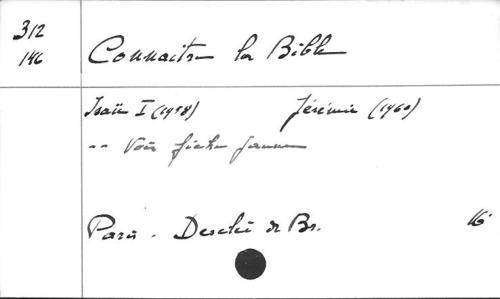 312
146
Connaitre la Bible
Isaïe I (1958) Jérémie (1960)
-- Voir fiche jaune
Paris. Desclée de Br. 16°